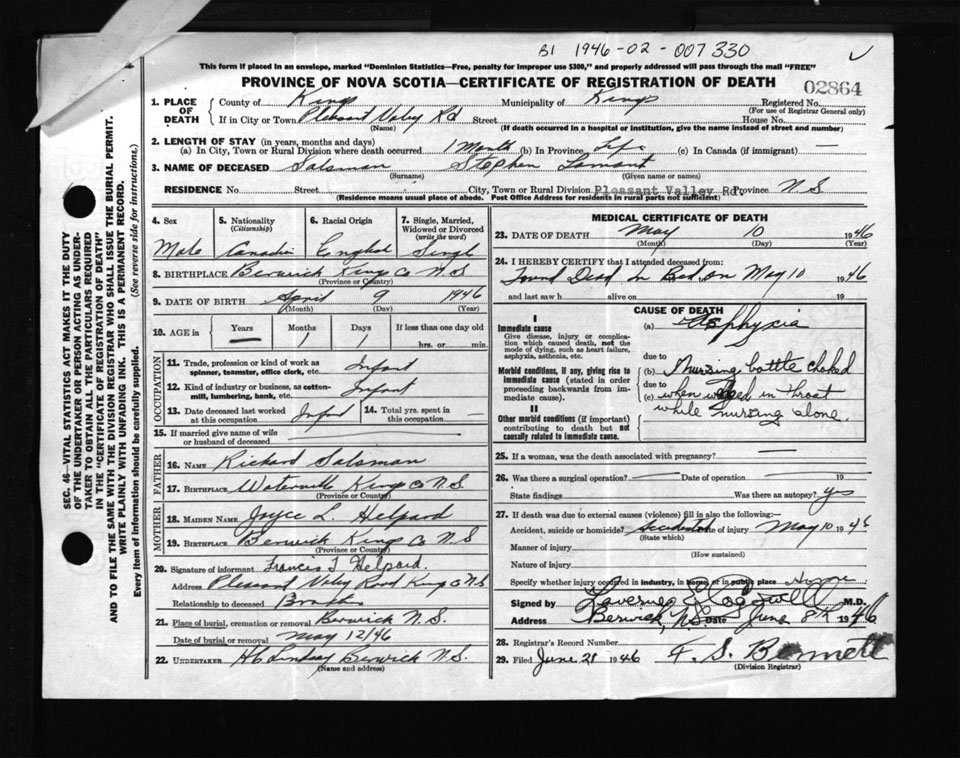 B1 1946-02-007330
This form if placed in an envelope, marked "Dominion Statistics—Free, penalty for improper use $300," and properly addressed will pass through the mail "FREE"
PROVINCE OF NOVA SCOTIA—CERTIFICATE OF REGISTRATION OF DEATH
02864
1. PLACE OF DEATH
County of Kings Municipality of Kings Registered No.
(For use of Registrar General only)
If in City or Town Pleasant Valey Rd Street House No.
(Name) (If death occurred in a hospital or institution, give the name instead of street and number)
2. LENGTH OF STAY (in years, months and days)
(a) In City, Town or Rural Division where death occurred 1 Month (b) In Province Life (c) In Canada (if immigrant) —
3. NAME OF DECEASED Salsman Stephen Lamont
(Surname) (Given name or names)
RESIDENCE No Street City, Town or Rural Division Pleasant Valley Rd. Province N.S.
(Residence means usual place of abode. Post Office Address for residents in rural parts not sufficient)
4. Sex
Male
5. Nationality
(Citizenship)
Canadian
6. Racial Origin
English
7. Single, Married,
Widowed or Divorced
(write the word)
Single
8. BIRTHPLACE Berwick Kings Co N.S
(Province or Country)
9. DATE OF BIRTH April 9 1946
(Month) (Day) (Year)
10. AGE in Years — Months 1 Days If less than one day old
hrs. or min.
OCCUPATION
11. Trade, profession or kind of work as
spinner, teamster, office clerk, etc. Infant
12. Kind of industry or business, as cotton-
mill, lumbering, bank, etc. Infant
13. Date deceased last worked
at this occupation Infant
14. Total yrs. spent in
this occupation —
15. If married give name of wife
or husband of deceased —
FATHER
16. NAME Richard Salsman
17. BIRTHPLACE Waterville Kings Co N.S
(Province or Country)
MOTHER
18. MAIDEN NAME Joyce L. Helpard
19. BIRTHPLACE Berwick Kings Co N.S
(Province or Country)
20. Signature of informant Francis Helpard.
Address Pleasant Valey Road Kings Co NS
Relationship to deceased
21. Place of burial, cremation or removal Berwick N.S.
Date of burial or removal May 12/46
22. UNDERTAKER Lindsay Berwick N.S.
(Name and address)
MEDICAL CERTIFICATE OF DEATH
23. DATE OF DEATH May 10 1946
(Month) (Day) (Year)
24. I HEREBY CERTIFY that I attended deceased from:
Found Dead in Bed on May 10 1946
and last saw h alive on 19
I
Immediate cause
Give disease, injury or complication
which caused death, not the
mode of dying, such as heart failure,
asphyxia, asthenia, etc.
Morbid conditions, if any, giving rise to
immediate cause (stated in order
proceeding backwards from immediate
cause).
II
Other morbid conditions (if important)
contributing to death but not
causally related to immediate cause.
CAUSE OF DEATH
(a) Asphyxia
due to
(b) Nursing bottle choked
due to
(c) when in throat
while nursing alone.
25. If a woman, was the death associated with pregnancy? —
26. Was there a surgical operation? — Date of operation — 19
State findings Was there an autopsy? Yes
27. If death was due to external causes (violence) fill in also the following:—
Accident, suicide or homicide? Accident Date of injury May 10 1946
(State which)
Manner of injury
(How sustained)
Nature of injury
Specify whether injury occurred in industry, in home or in public place Home
Signed by M.D.
Address Berwick, N.S. Date June 8th 1946
28. Registrar's Record Number
29. Filed June 21 1946 F. S. Bennett
(Division Registrar)
SEC. 46—VITAL STATISTICS ACT MAKES IT THE DUTY
OF THE UNDERTAKER OR PERSON ACTING AS UNDER-
TAKER TO OBTAIN ALL THE PARTICULARS REQUIRED
IN THE "CERTIFICATE OF REGISTRATION OF DEATH"
AND TO FILE THE SAME WITH THE DIVISION REGISTRAR WHO SHALL ISSUE THE BURIAL PERMIT.
WRITE PLAINLY WITH UNFADING INK. THIS IS A PERMANENT RECORD.
Every item of information should be carefully supplied. (See reverse side for instructions.)